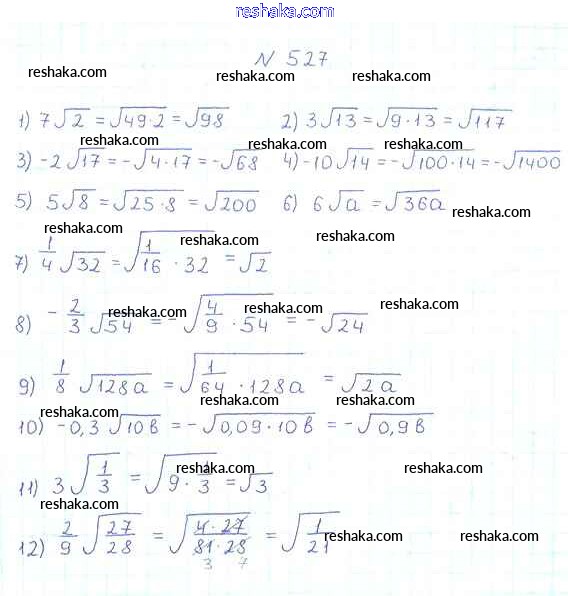 reshaka.com
N 527
reshaka.com reshaka.com reshaka.com
1) 7√2 = √49·2 = √98 2) 3√13 = √9·13 = √117
reshaka.com reshaka.com
3) -2√17 = -√4·17 = -√68 4) -10√14 = -√100·14 = -√1400
reshaka.com
5) 5√8 = √25·8 = √200 6) 6√a = √36a
reshaka.com reshaka.com
reshaka.com reshaka.com reshaka.com
7) 1/4 √32 = √1/16 · 32 = √2
reshaka.com reshaka.com reshaka.com
8) -2/3 √54 = -√4/9 · 54 = -√24
9) 1/8 √128a = √1/64 · 128a = √2a
reshaka.com reshaka.com reshaka.com
10) -0,3√10в = -√0,09·10в = -√0,9в
reshaka.com reshaka.com
11) 3√1/3 = √9 · 1/3 = √3
reshaka.com
12) 2/9 √27/28 = √4·27/81·28 = √1/21
reshaka.com reshaka.com
3 7